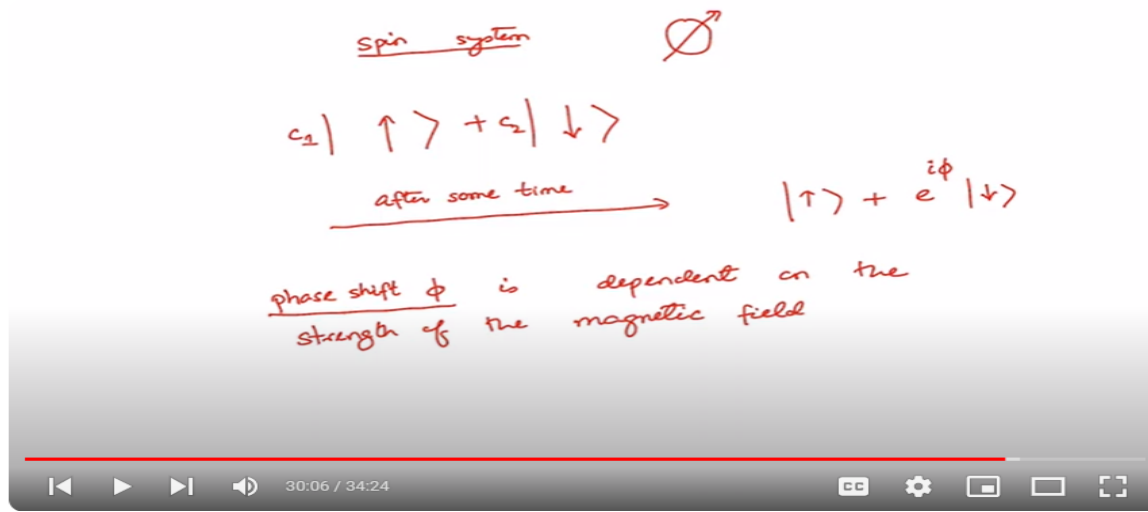 spin system
c₁| ↑ ⟩ + c₂| ↓ ⟩
after some time
|↑⟩ + e^{iϕ} |↓⟩
phase shift ϕ is dependent on the
strength of the magnetic field
30:06 / 34:24
CC